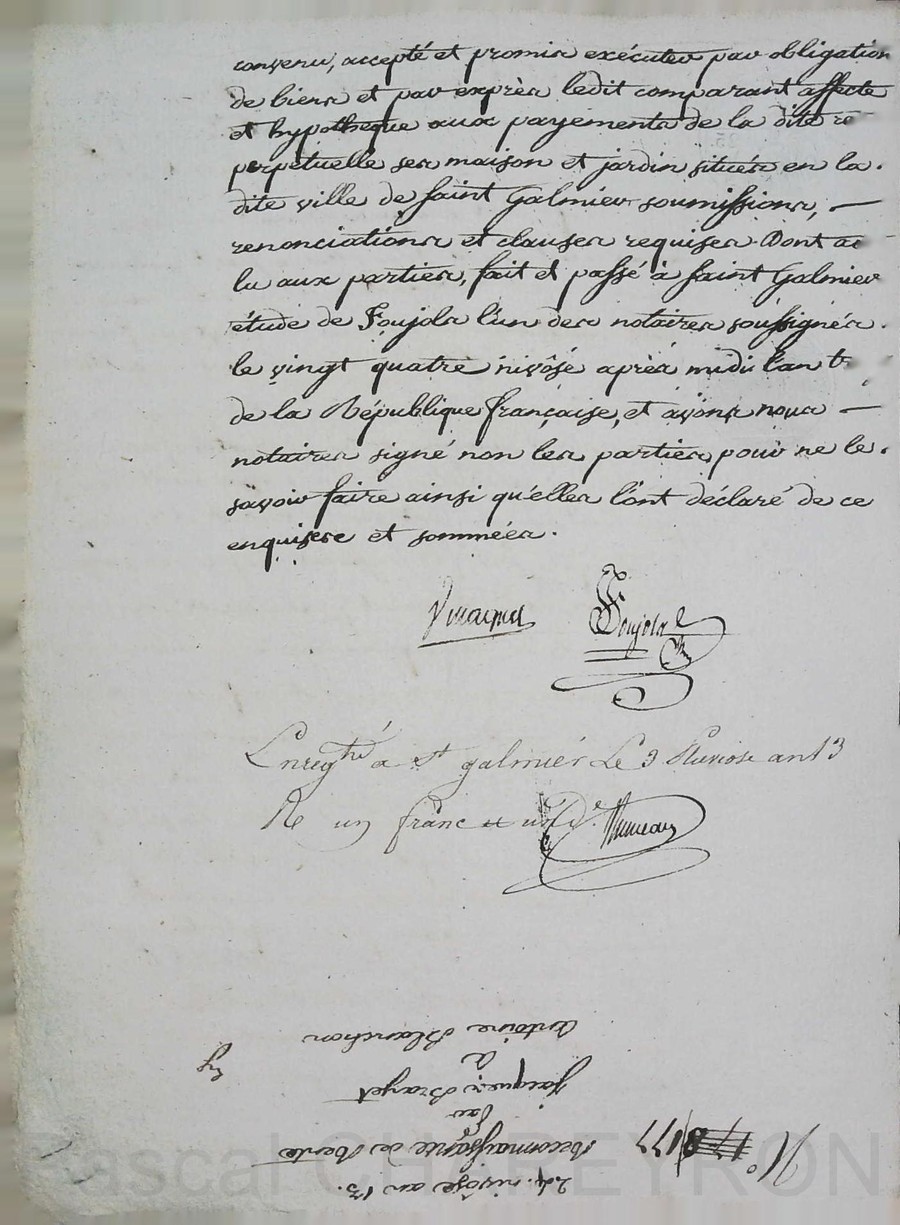 convenu, accepté et promis exécuter par obligation
de biens et par exprès ledit comparant affecte
et hypotheque aux payements de la dite re
perpétuelle ses maison et jardin situés en la
dite ville de Saint Galmier soumissions, —
renonciations et clauses requises. Dont ac
lu aux parties, fait et passé à Saint Galmier
étude de Foujols l'un des notaires soussignés.
le vingt quatre nivôse après midi l'an
de la République française, et avons nous —
notaires signé non les parties pour ne le
savoir faire ainsi qu'elles l'ont déclaré de ce
enquises et sommées.
Foujols
Enregtré a St galmier Le 3 Pluviose an 13
R un franc
24. nivôse an 13.
N° 177
Reconnaissance de Rente
par
Jacques Brayet
à
Antoine Blanchon
Pascal CHAREYRON